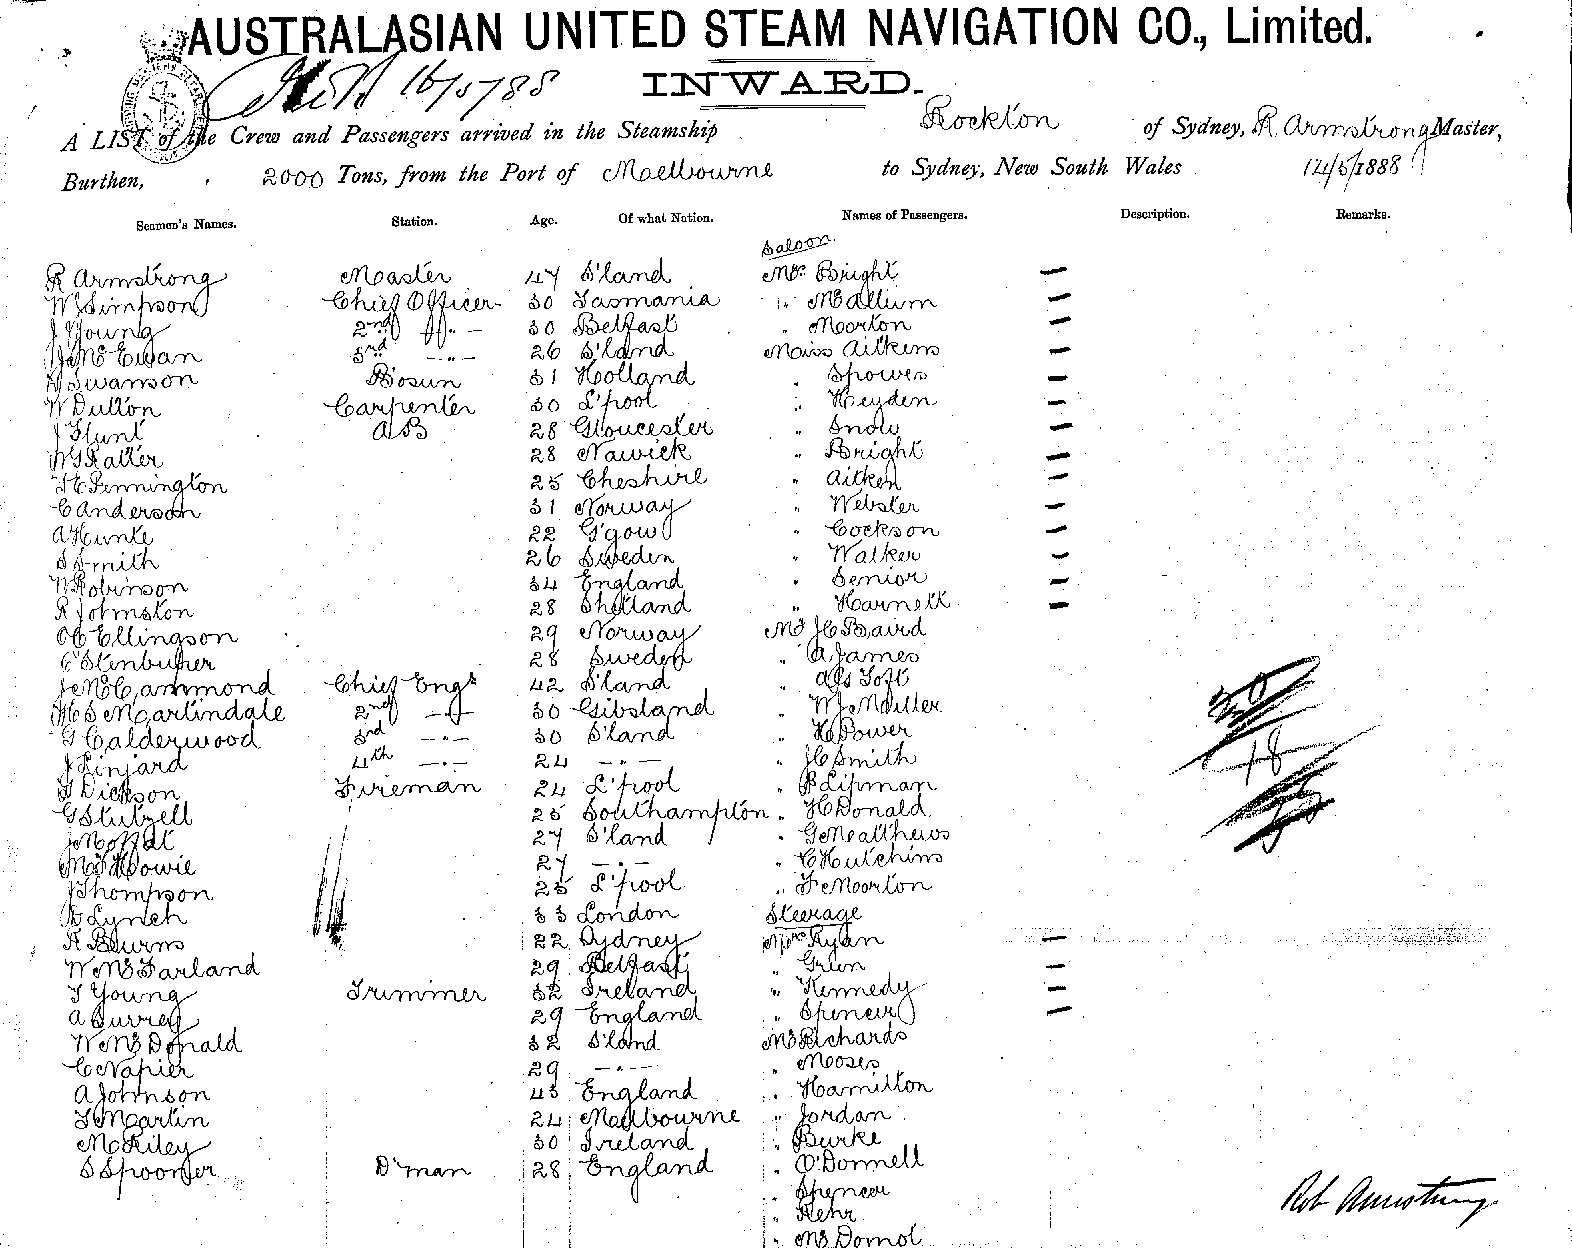 AUSTRALASIAN UNITED STEAM NAVIGATION CO., Limited.
16/5/88 INWARD.
A LIST of the Crew and Passengers arrived in the Steamship Rockton of Sydney, R Armstrong Master,
Burthen, 2000 Tons, from the Port of Melbourne to Sydney, New South Wales 14/5/1888
Seamen's Names. Station. Age. Of what Nation. Names of Passengers. Description. Remarks.
Saloon
R Armstrong Master 47 S'land Mrs Bright —
W Simpson Chief Officer 30 Tasmania " McAllium —
J Young 2nd " — 30 Belfast " Morton —
J McEwan 3rd —"— 26 S'land Miss Aitkens —
Swanson Bosun 31 Holland " Spowers —
W Dutton Carpenter 30 L'pool " Heyden —
J Hunt AB 28 Gloucester " Snow —
W G Ratter 28 Nawick " Bright —
Pennington 25 Cheshire " Aitken —
C Anderson 31 Norway " Webster —
A Hunte 22 G'gow " Cockson —
S Smith 26 Sweden " Walker —
W Robinson 34 England " Senior —
R Johnston 28 Shetland " Harnett —
O C Ellingson 29 Norway Mr J C Baird
28 Sweden " A James
J McCammond Chief Engr 42 S'land " Toft
H S Martindale 2nd —"— 30 Gibsland " W J Miller
G Calderwood 3rd —"— 30 S'land " H Power
J Linjard 4th —"— 24 —"— " J C Smith
T Dickson Fireman 24 L'pool " P Lipman
G Stutzell 25 Southampton " H Donald
J Moffat 27 S'land " G Matthews
Howie 27 —"— " C Hutchins
J Thompson 25 L'pool " F Moorton
Lynch 33 London Steerage
R Burns 22 Sydney Mrs Ryan —
W McFarland 29 Belfast " Green —
T Young Trimmer 32 Ireland " Kennedy —
A Surrey 29 England " Spencer —
W McDonald 32 S'land Mr Richards
C Napier 29 —"— " Moses
A Johnson 43 England " Hamilton
T Martin 24 Melbourne " Jordan
M Riley 30 Ireland " Burke
S Spooner D'man 28 England " O'Donnell
" Spencer
" Kehr
" McDomol
48
Rob Armstrong